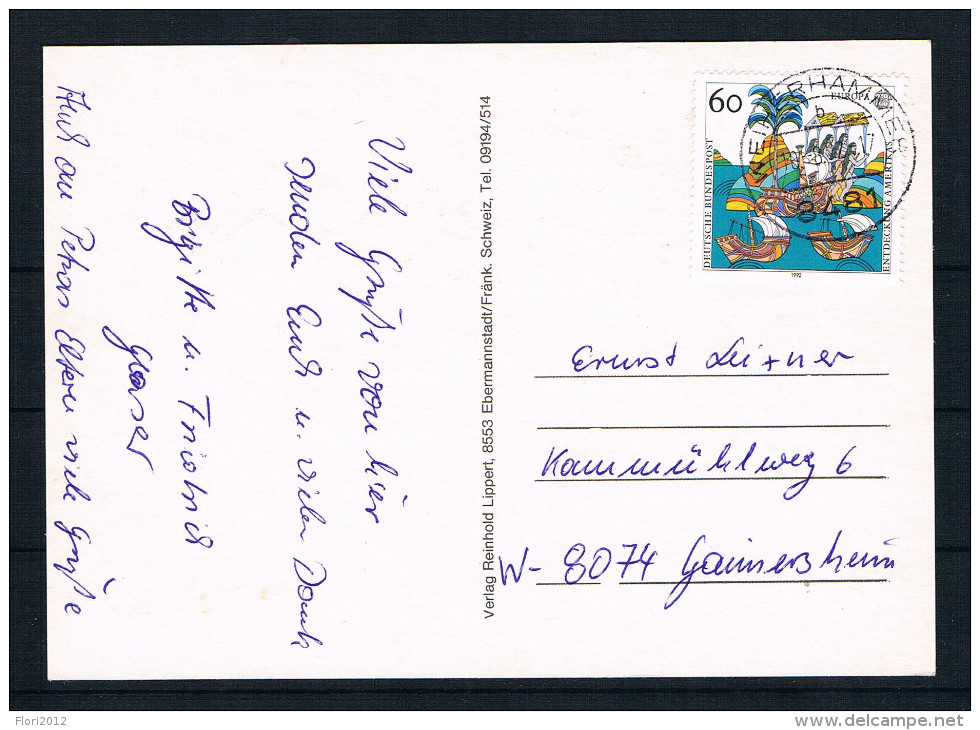 Viele Grüße von hier
senden Euch u. vielen Dank
Brigitte u. Friedrich
Glaser
Auch an Petras Eltern viele Grüße
Verlag Reinhold Lippert, 8553 Ebermannstadt/Fränk. Schweiz, Tel. 09194/514
60
EUROPA
DEUTSCHE BUNDESPOST
ENTDECKUNG AMERIKAS
1992
b
Ernst Leixner
Kammühlweg 6
W-8074 Gaimersheim
Flori2012